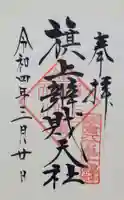 奉拝
旗上辨財天社
令和四年三月廿日